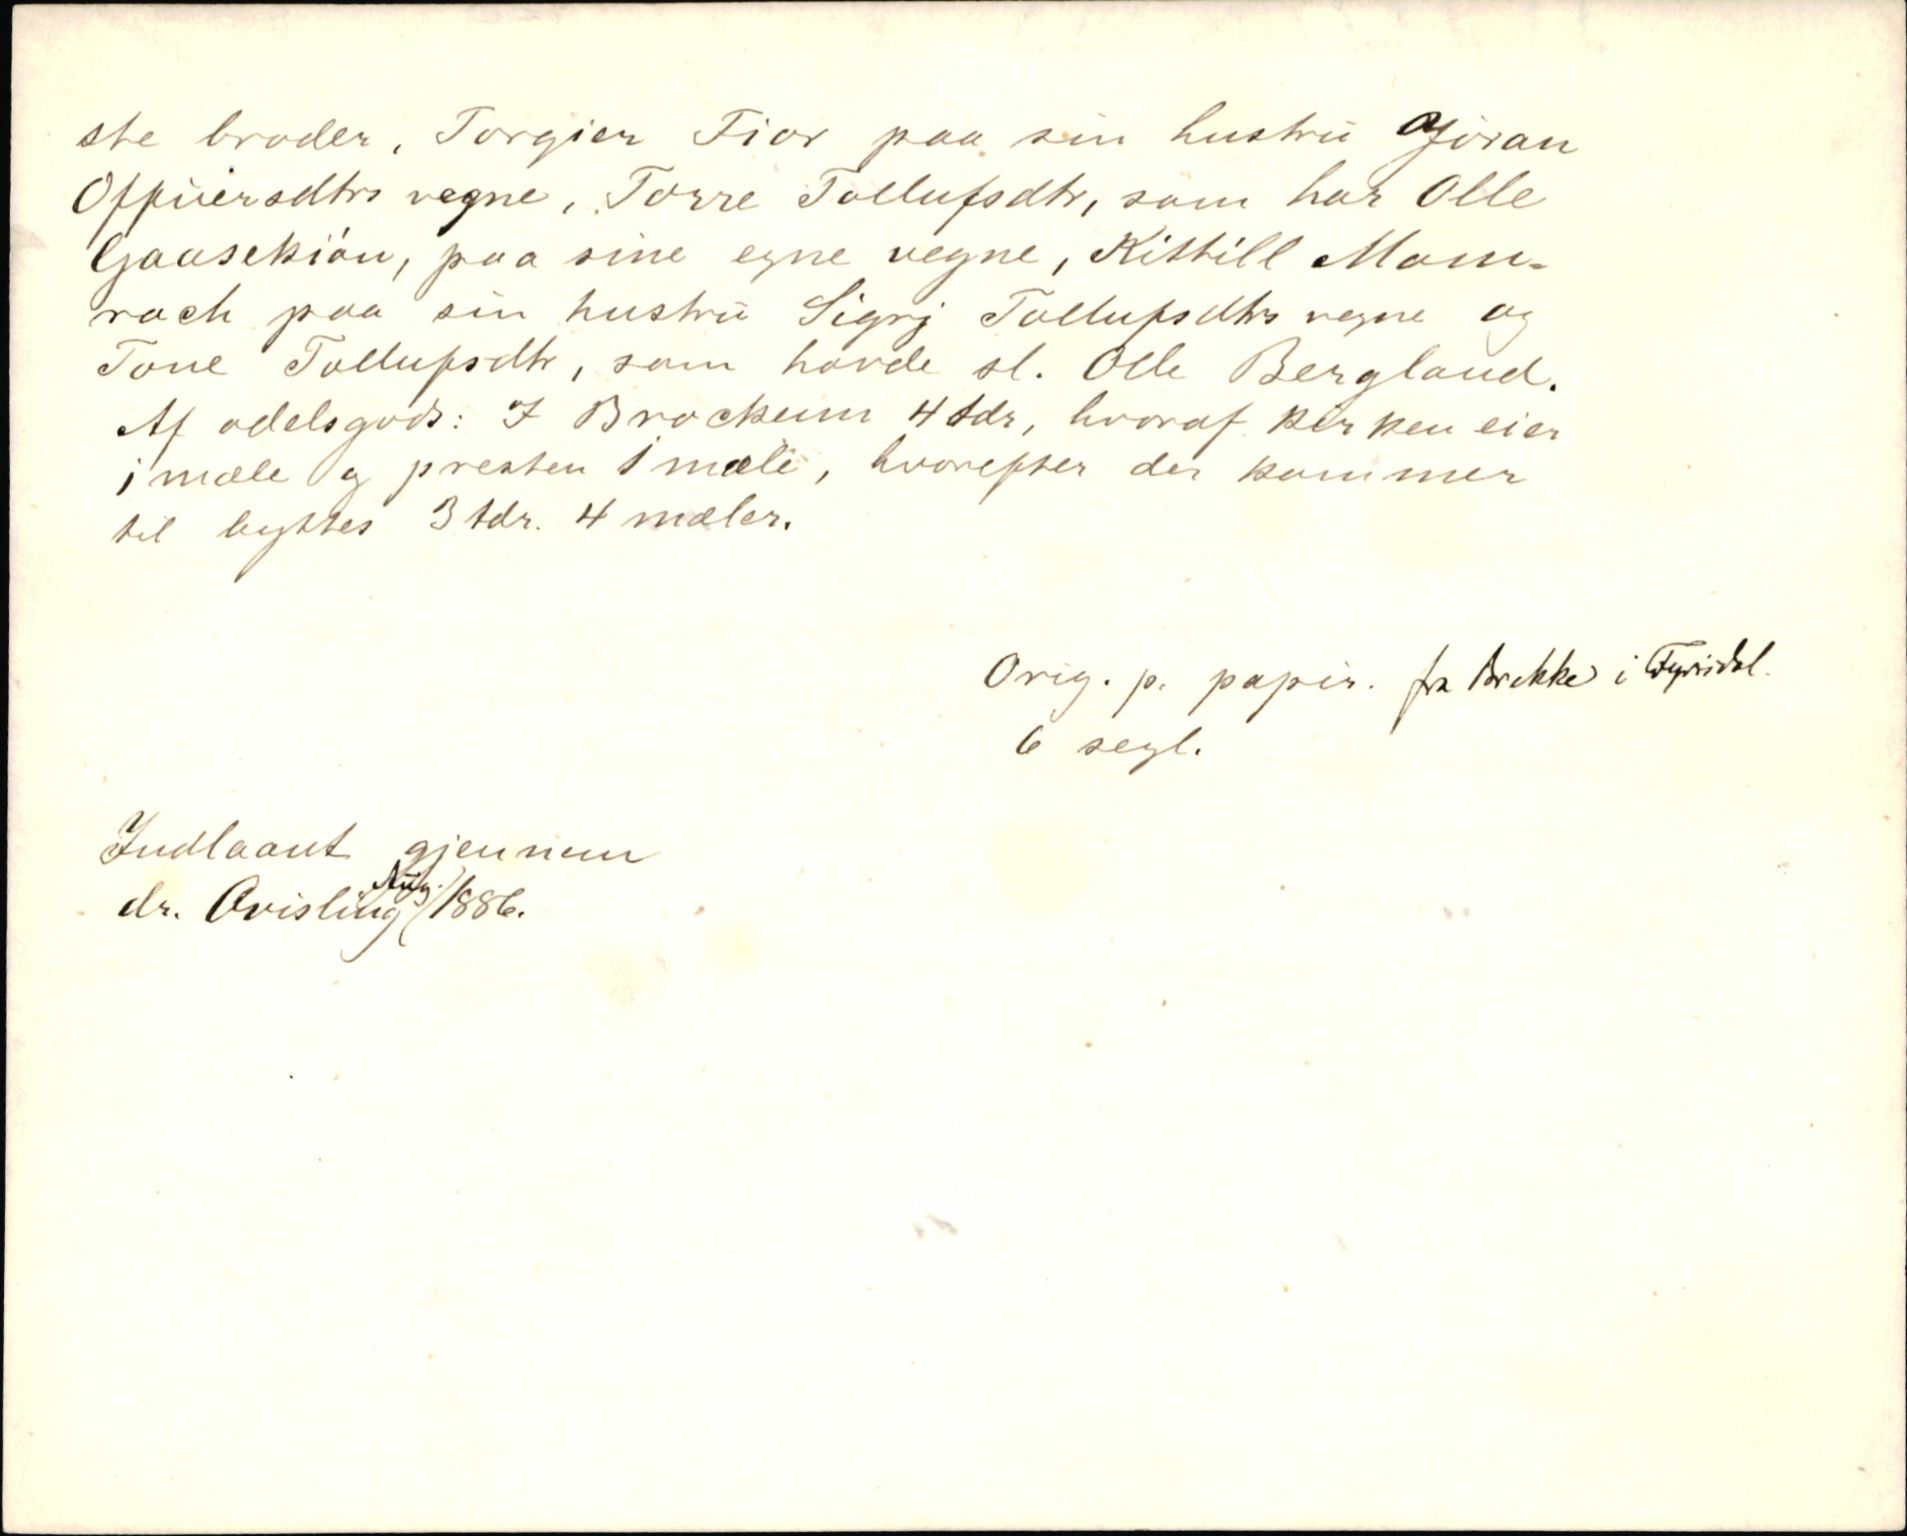 ste broder, Torgier Fior paa sin hustru Göran
Offüersdtrs vegne, Torre Tollufsdtr, som har Olle
Gaasekiön, paa sine egne vegne, Kittill Mom-
rach paa sin hustrü Sigrj Tollufsdtrs vegne og
Tone Tollufsdtr, som havde sl. Olle Bergland.
Af odelsgods: I Brockeum 4 tdr, hvoraf kirken eier
1 mæle og presten 1 mæle, hvorefter der kommer
til byttes 3 tdr. 4 mæler.
Orig. p. papir. fra Brekke i Fyrisdal.
6 segl.
Indlaant gjennem
dr. Qvisling Aug. 1886.